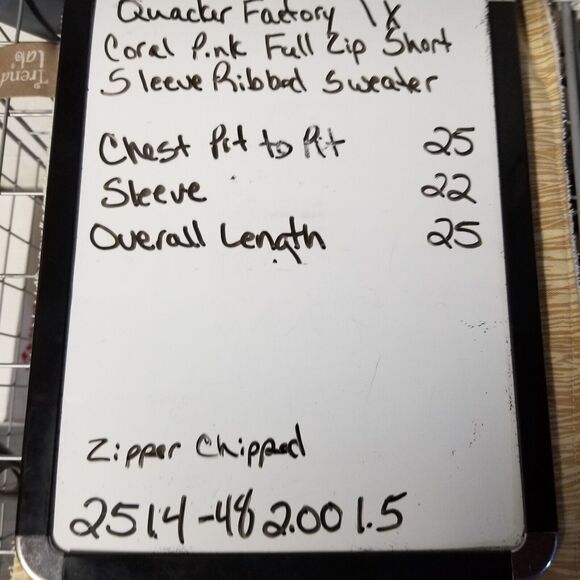 Quacker Factory 1X
Coral Pink Full Zip Short
Sleeve Ribbed Sweater
Chest Pit to Pit 25
Sleeve 22
Overall Length 25
Zipper Chipped
251.4-48 2.00 1.5
Trend Lab